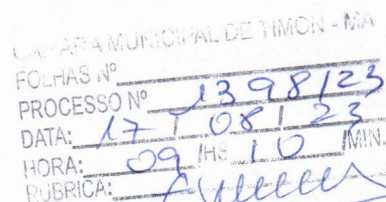 CAMARA MUNICIPAL DE TIMON - MA
FOLHAS Nº
PROCESSO Nº 1398/23
DATA: 17 / 08 / 23
HORA: 09 /HS 10 /MIN.
RUBRICA: